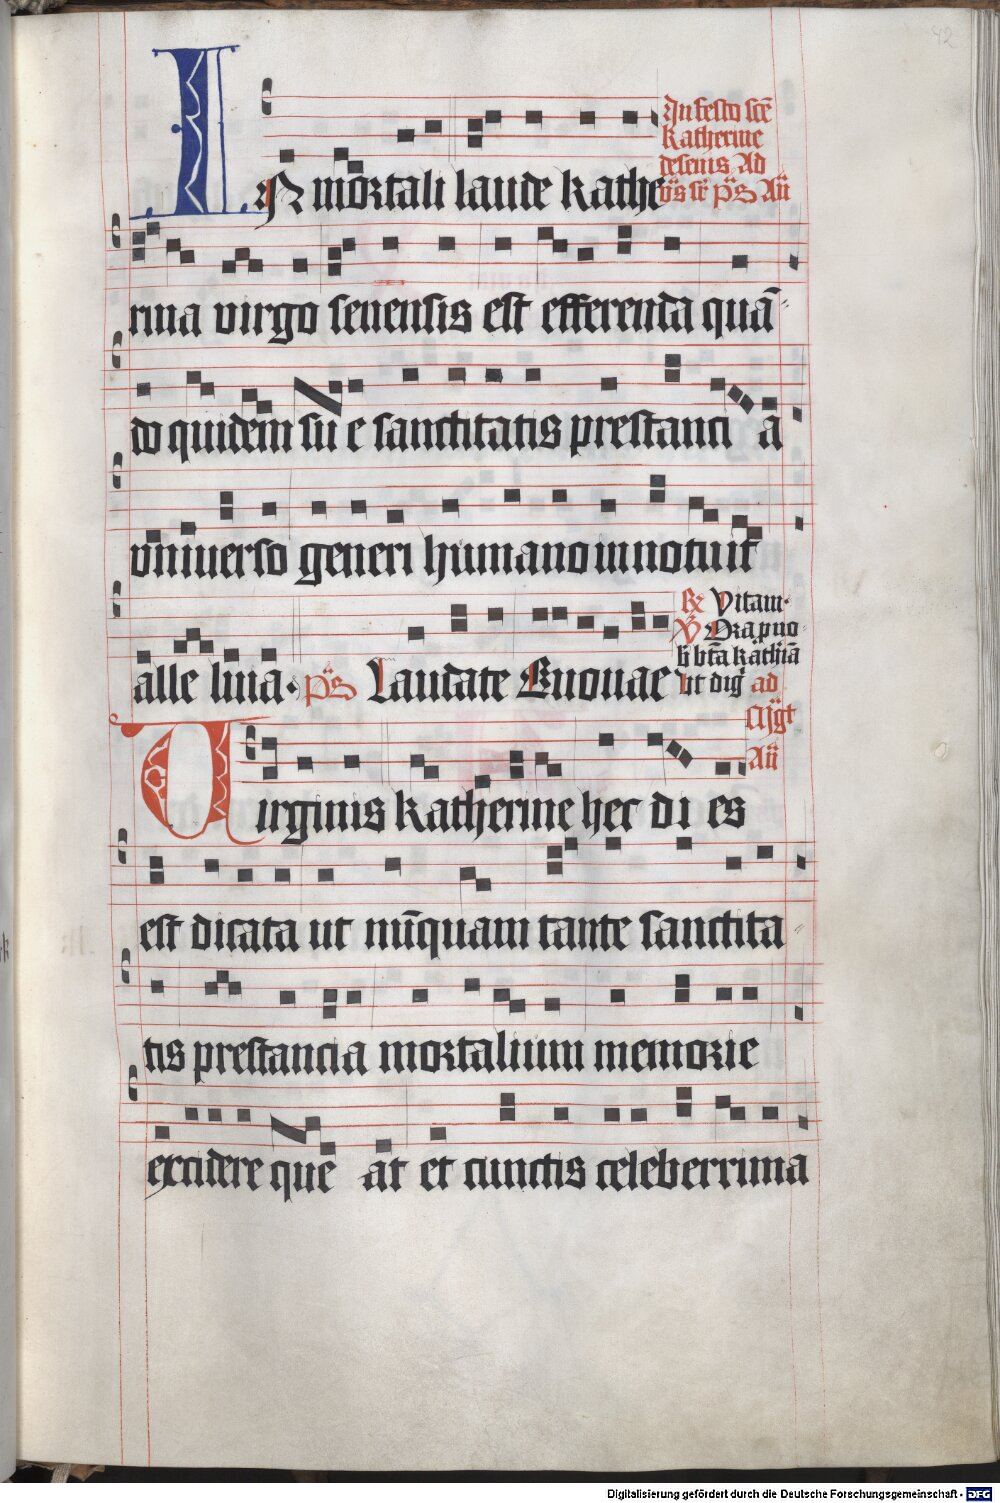 42
In festo scē
Katherine
de senis Ad
Immortali laude Kathe
rina virgo senensis est efferenda quā
do quidem su e sanctitatis prestanci a
vniuerso generi humano innotuit
℟ Vitam·
℣ Ora p̄ no
b̄ btā kath̄iā
alle luia· p̄s Laudate Euouae
Ut diḡ ad
Mḡt
Añ
Virginis Katherine hec di es
est dicata ut nūquam tante sanctita
tis prestancia mortalium memorie
excidere que at et cunctis celeberrima
Digitalisierung gefördert durch die Deutsche Forschungsgemeinschaft - DFG